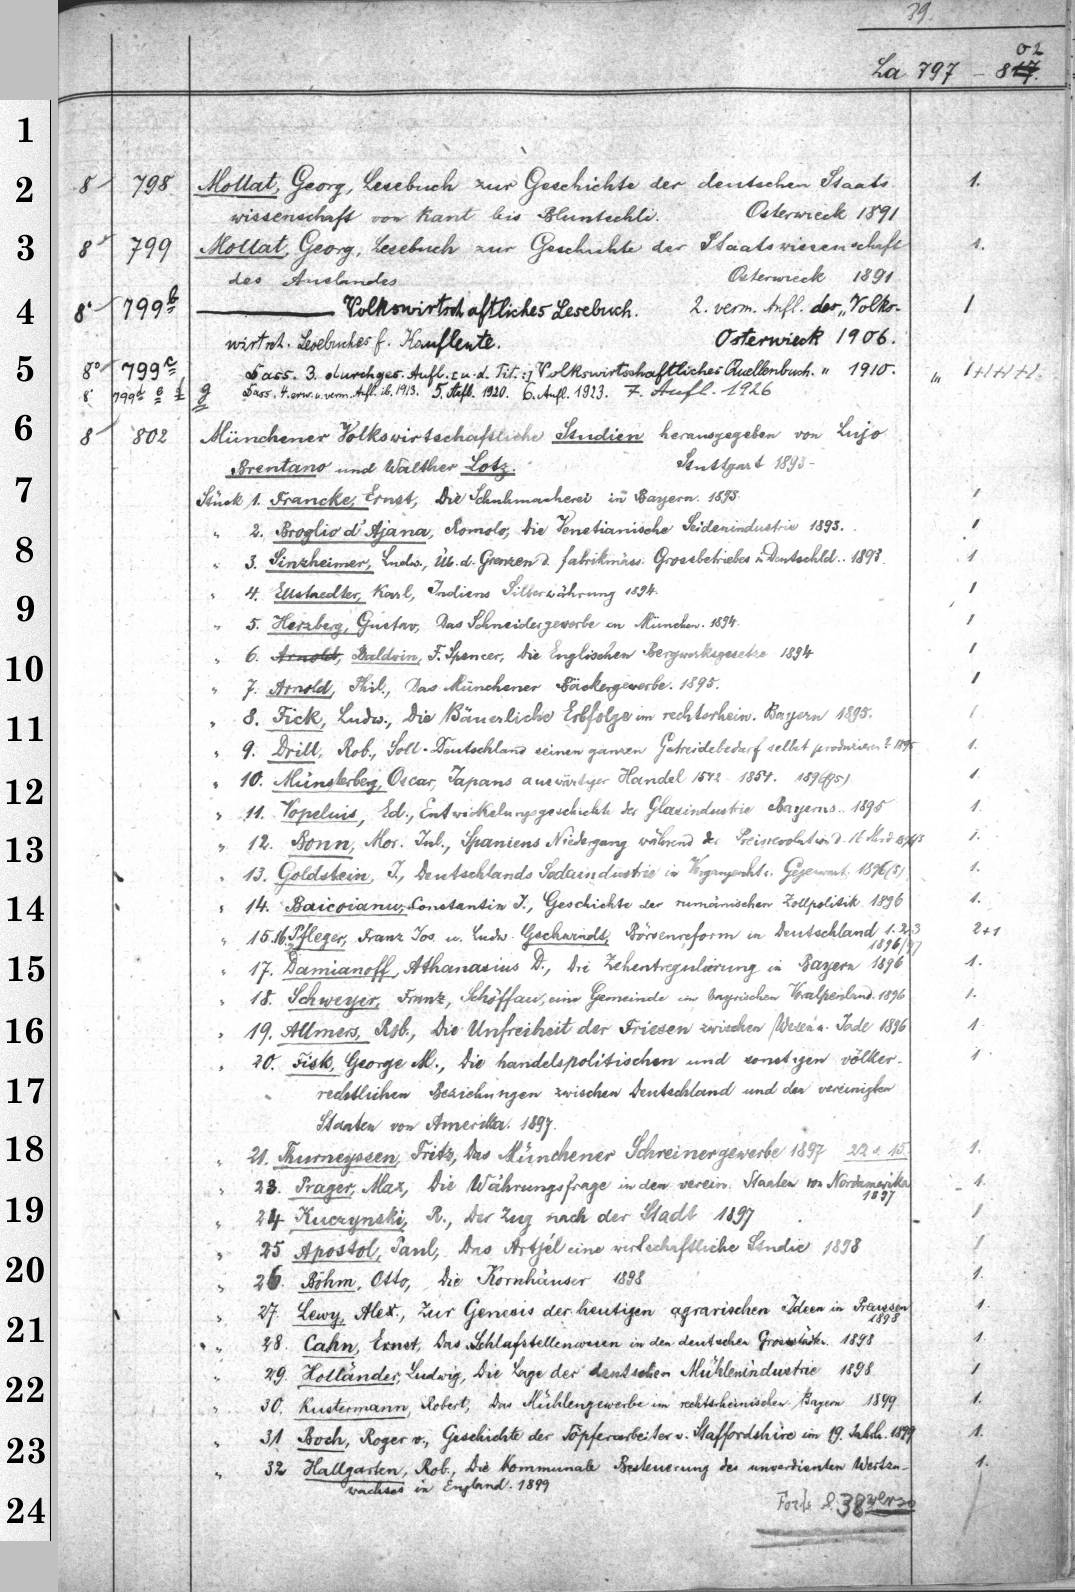 39.
02
La 797 – 817.
1
2
8° 798 Mollat, Georg, Lesebuch zur Geschichte der deutschen Staats
wissenschaft von Kant bis Bluntschli. Osterwieck 1891 1.
3
8° 799 Mollat, Georg, Lesebuch zur Geschichte der Staatswissenschaft 1.
des Auslandes Osterwieck 1891
4
8° 799b ——— Volkswirtschaftliches Lesebuch. 2. verm. Aufl. der „Volks- 1
wirtsch. Lesebuches f. Kaufleute. Osterwieck 1906.
5
8° 799c Dass. 3. durchges. Aufl. u. d. Tit.: Volkswirtschaftliches Quellenbuch. " 1910. „ 1+1+1+1.
8° 799d e f g Dass. 4. erw. u. verm. Aufl. ib. 1913. 5. Aufl. 1920. 6. Aufl. 1923. 7. Aufl. 1926
6
8° 802 Münchener Volkswirtschaftliche Studien herausgegeben von Lujo
Brentano und Walther Lotz. Stuttgart 1893-
7
Stück 1. Francke, Ernst, Die Schuhmacherei in Bayern. 1893. 1
" 2. Broglio d'Ajano, Romolo, Die Venetianische Seidenindustrie 1893. 1
8
" 3. Sinzheimer, Ludw., Üb. d. Grenzen d. fabrikmäss. Grossbetriebes in Deutschld. 1893. 1
" 4. Ellstaedter, Karl, Indiens Silberwährung 1894. 1
9
" 5. Herzberg, Gustav, Das Schneidergewerbe in München. 1894. 1
" 6. Arnold, Baldwin, F. Spencer, Die Englischen Bergwerksgesetze 1894 1
10
" 7. Arnold, Phil., Das Münchener Bäckergewerbe. 1895. 1
" 8. Fick, Ludw., Die Bäuerliche Erbfolge im rechtsrhein. Bayern 1895. 1
11
" 9. Drill, Rob., Soll Deutschland seinen ganzen Getreidebedarf selbst produzieren? 1895 1.
" 10. Münsterberg, Oscar, Japans auswärtiger Handel 1542–1854. 1896(95) 1.
12
" 11. Vopelius, Ed., Entwickelungsgeschichte der Glasindustrie Bayerns. 1895 1.
" 12. Bonn, Mor. Jul., Spaniens Niedergang während der Preisrevolution d. 16. Jhrd. 1.
13
" 13. Goldstein, J., Deutschlands Sodaindustrie in Vergangenht. u. Gegenwart. 1896(5) 1.
14
" 14. Baicoianu, Constantin I., Geschichte der rumänischen Zollpolitik 1896 1.
" 15.16. Pfleger, Franz Jos. u. Ludw. Gschwindt, Börsenreform in Deutschland 1.2.3 2+1
1896/97
15
" 17. Damianoff, Athanasius D., Die Zehentregulierung in Bayern 1896 1.
" 18. Schweyer, Franz, Schöffau, eine Gemeinde im bayrischen Voralpenland. 1896 1.
16
" 19. Allmers, Rob., Die Unfreiheit der Friesen zwischen Weser u. Jade 1896 1
" 20. Fisk, George M., Die handelspolitischen und sonstigen völker- 1
17
rechtlichen Beziehungen zwischen Deutschland und den vereinigten
Staaten von Amerika. 1897.
18
" 21. Thurneyssen, Fritz, Das Münchener Schreinergewerbe 1897 22 s. 15. 1.
" 23. Prager, Max, Die Währungsfrage in den verein. Staaten von Nordamerika 1.
1897
19
" 24 Kuczynski, R., Der Zug nach der Stadt 1897 1
" 25 Apostol, Paul, Das Artjél eine wirtschaftliche Studie 1898 1
20
" 26. Böhm, Otto, Die Kornhäuser 1898 1.
" 27. Lewy, Alex., Zur Genesis der heutigen agrarischen Ideen in Preussen 1.
1898
21
" 28. Cahn, Ernst, Das Schlafstellenwesen in den deutschen Grosstädten. 1898 1.
" 29. Holländer, Ludwig, Die Lage der deutschen Mühlenindustrie 1898 1
22
" 30. Kustermann, Robert, Das Mühlengewerbe im rechtsrheinischen Bayern 1899. 1.
23
" 31 Boch, Roger v., Geschichte der Töpferarbeiter v. Staffordshire im 19. Jahrh. 1899 1.
" 32 Hallgarten, Rob., Die Kommunale Besteuerung des unverdienten Wertzu- 1.
wachses in England. 1899
24
Forts. S. 38 verso